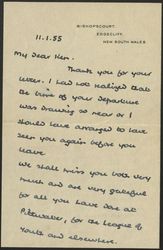 BISHOPSCOURT,
EDGECLIFF,
NEW SOUTH WALES
11.1.55
My dear Ken.
Thank you for your
letter. I had not realized that
the time of your departure
was drawing so near or I
should have arranged to have
seen you again before you
leave.
We shall miss you both very
much and are very grateful
for all you have done at
for the League of
Youth and elsewhere.